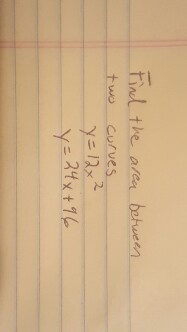 Find the area between
two curves
y = 12x²
y = 24x + 96